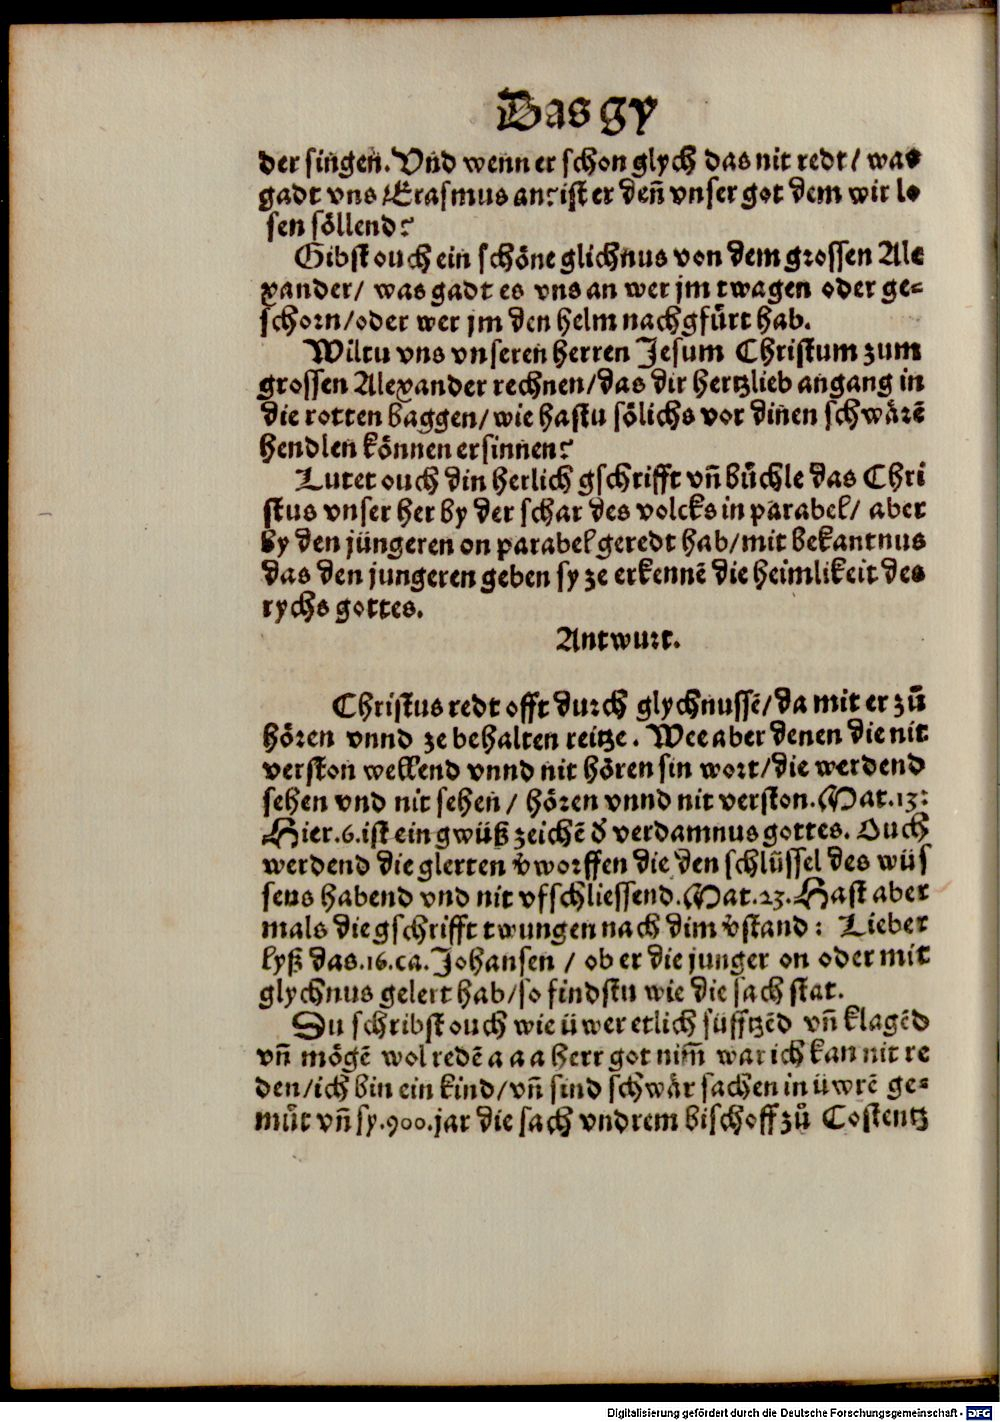 Das gy
der singen. Vnd wenn er schon glych das nit redt / was
gadt vns Erasmus an? ist er deñ vnser got dem wir lo
sen söllend?
Gibst ouch ein schöne glichnus von dem grossen Ale
xander / was gadt es vns an wer jm twagen oder ge=
schorn / oder wer jm den helm nachgfürt hab.
Wiltu vns vnseren herren Jesum Christum zum
grossen Alexander rechnen / das dir hertzlieb angang in
die rotten baggen / wie hastu sölichs vor dinen schwärē
hendlen können ersinnen?
Lutet ouch din herlich gschrifft vñ büchle das Chri
stus vnser her by der schar des volcks in parabel / aber
by den jüngeren on parabel geredt hab / mit bekantnus
das den jungeren geben sy ze erkennē die heimlikeit des
rychs gottes.
Antwurt.
Christus redt offt durch glychnussē / da mit er zů
hören vnnd ze behalten reitze. Wee aber denen die nit
verston wellend vnnd nit hören sin wort / die werdend
sehen vnd nit sehen / hören vnnd nit verston. Mat. 13:
Hier. 6. ist ein gwüß zeichē d̄ verdamnus gottes. Ouch
werdend die glerten v̄worffen die den schlüssel des wüs
sens habend vnd nit vfschliessend. Mat. 23. Hast aber
mals die gschrifft twungen nach dim v̄stand: Lieber
lyß das. 16. ca. Johansen / ob er die junger on oder mit
glychnus gelert hab / so findstu wie die sach stat.
Du schribst ouch wie üwer etlich süfftzēd vñ klagēd
vñ mögē wol redē a a a herr got nim̄ war ich kan nit re
den / ich bin ein kind / vñ sind schwär sachen in üwrē ge=
müt vñ sy. 900. jar die sach vndrem bischoff zů Costentz
Digitalisierung gefördert durch die Deutsche Forschungsgemeinschaft - DFG